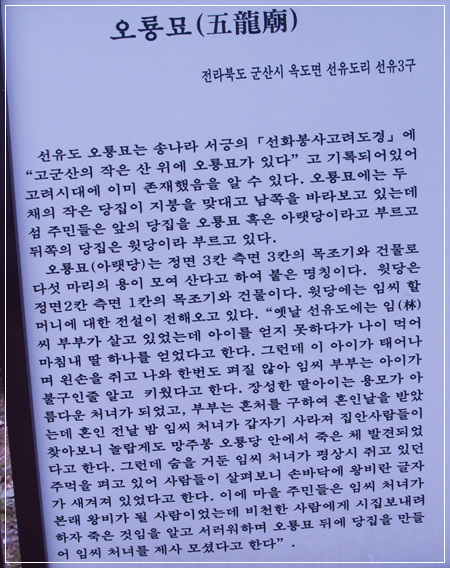 오룡묘(五龍廟)
전라북도 군산시 옥도면 선유도리 선유3구
선유도 오룡묘는 송나라 서긍의 「선화봉사고려도경」에
“고군산의 작은 산 위에 오룡묘가 있다” 고 기록되어있어
고려시대에 이미 존재했음을 알 수 있다. 오룡묘에는 두
채의 작은 당집이 지붕을 맞대고 남쪽을 바라보고 있는데
섬 주민들은 앞의 당집을 오룡묘 혹은 아랫당이라고 부르고
뒤쪽의 당집은 윗당이라 부르고 있다.
오룡묘(아랫당)는 정면 3칸 측면 3칸의 목조기와 건물로
다섯 마리의 용이 모여 산다고 하여 붙은 명칭이다. 윗당은
정면2칸 측면 1칸의 목조기와 건물이다. 윗당에는 임씨 할
머니에 대한 전설이 전해오고 있다. “옛날 선유도에는 임(林)
씨 부부가 살고 있었는데 아이를 얻지 못하다가 나이 먹어
마침내 딸 하나를 얻었다고 한다. 그런데 이 아이가 태어나
며 왼손을 쥐고 나와 한번도 펴질 않아 임씨 부부는 아이가
불구인줄 알고 키웠다고 한다. 장성한 딸아이는 용모가 아
름다운 처녀가 되었고, 부부는 혼처를 구하여 혼인날을 받았
는데 혼인 전날 밤 임씨 처녀가 갑자기 사라져 집안사람들이
찾아보니 놀랍게도 망주봉 오룡당 안에서 죽은 체 발견되었
다고 한다. 그런데 숨을 거둔 임씨 처녀가 평상시 쥐고 있던
주먹을 펴고 있어 사람들이 살펴보니 손바닥에 왕비란 글자
가 새겨져 있었다고 한다. 이에 마을 주민들은 임씨 처녀가
본래 왕비가 될 사람이었는데 비천한 사람에게 시집보내려
하자 죽은 것임을 알고 서러워하며 오룡묘 뒤에 당집을 만들
어 임씨 처녀를 제사 모셨다고 한다” .